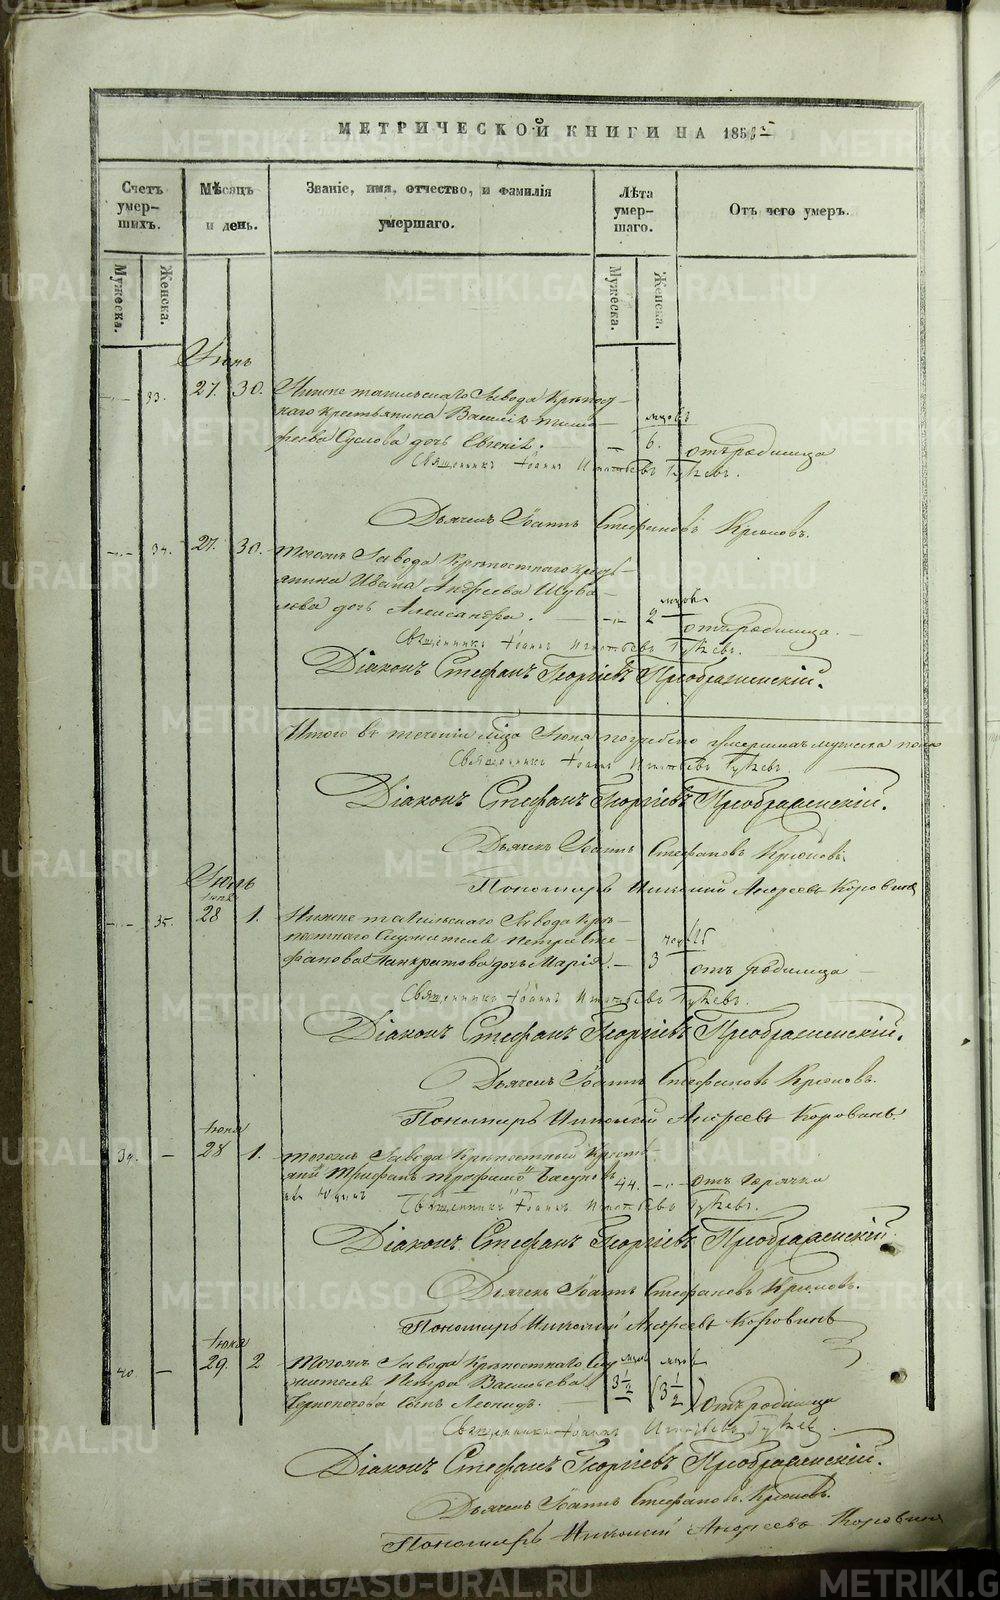 МЕТРИЧЕСКОЙ КНИГИ НА 185
Счетъ умер-шихъ.
Мѣсяцъ и день.
Званіе, имя, отчество, и фамилія умершаго.
Лѣта умер-шаго.
Отъ чего умеръ.
Мужеска.
Женска.
Мужеска.
Женска.
Іюнь
33. 27. 30. Нижне тагильскаго Завода Крѣпост-
наго крестьянина Василія
Суслова дочь Евгенія. 6. мцовъ отъ родимца
Священникъ Іоаннъ Игнатьевъ
Дьячекъ Іоаннъ Стефановъ Крюковъ.
34. 27. 30. Тогожъ Завода Крѣпостнаго кресть-
янина Ивана Андреева Шува-
лова дочь Александра. 2 мцовъ отъ родимца.
Священникъ Іоаннъ Игнатьевъ
Діаконъ Стефанъ Георгіевъ Преображенскій.
Итого въ теченіи мца Іюня погребено умершихъ мужеска пола
Священникъ Іоаннъ Игнатьевъ
Діаконъ Стефанъ Георгіевъ Преображенскій.
Дьячекъ Іоаннъ Стефановъ Крюковъ.
Пономарь Николай Андреевъ Коровинъ
Іюль
іюня
35. 28 1. Нижне тагильскаго Завода Крѣ-
постнаго Служителя Петра Сте-
фанова Панкратова дочь Марія. 3 отъ родимца
Священникъ Іоаннъ Игнатьевъ
Діаконъ Стефанъ Георгіевъ Преображенскій.
Дьячекъ Іоаннъ Стефановъ Крюковъ.
Пономарь Николай Андреевъ Коровинъ
іюня
39. 28 1. Тогожъ Завода Крѣпостный Кресть-
янинъ Трифанъ 44. отъ Горячки
Священникъ Іоаннъ Игнатьевъ
Діаконъ Стефанъ Георгіевъ Преображенскій
Дьячекъ Іоаннъ Стефановъ Крюковъ.
Пономарь Николай Андреевъ Коровинъ
іюня
40 29. 2 Тогожъ Завода Крѣпостнаго Слу-
жителя Петра Васильева
Черноногова сынъ Леонидъ. 3 1/2 мцовъ (3 1/2) отъ родимца
Священникъ Іоаннъ Игнатьевъ
Діаконъ Стефанъ Георгіевъ Преображенскій.
Дьячекъ Іоаннъ Стефановъ Крюковъ.
Пономарь Николай Андреевъ Коровинъ
METRIKI.GASO-URAL.RU